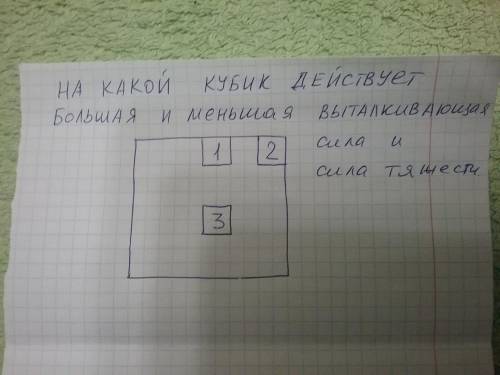 НА КАКОЙ КУБИК ДЕЙСТВУЕТ
БОЛЬШАЯ И МЕНЬШАЯ ВЫТАЛКИВАЮЩАЯ
СИЛА И
СИЛА ТЯЖЕСТИ
1 2
3